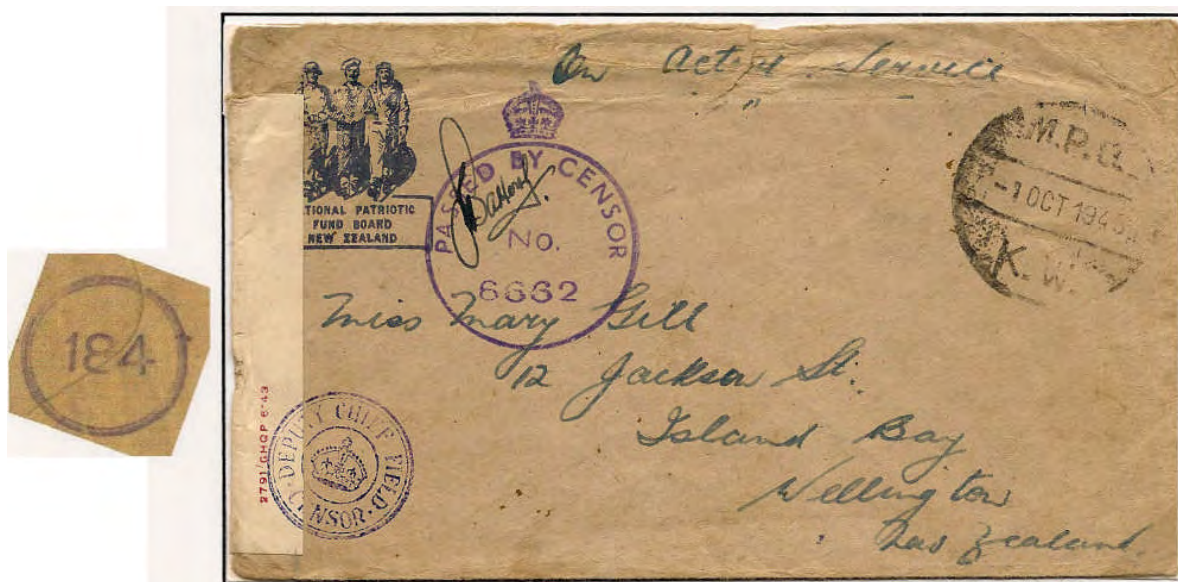 On Active Service
" "
NATIONAL PATRIOTIC
FUND BOARD
NEW ZEALAND
PASSED BY CENSOR
No.
6662
M.P.O.
-1 OCT 194
K.W.
184
Miss Mary Gill
12 Jackson St.
Island Bay
Wellington
New Zealand.
2791/GHQP 6-43
DEPUTY CHIEF FIELD CENSOR